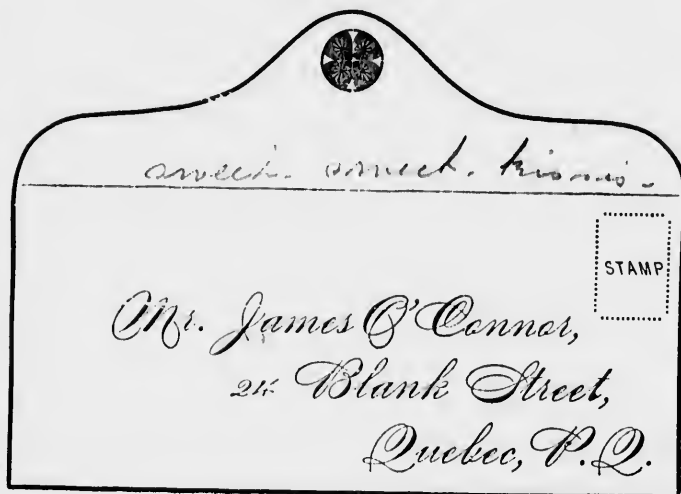 sweet. sweet. kisses.
STAMP
Mr. James O'Connor,
24 Blank Street,
Quebec, P. Q.